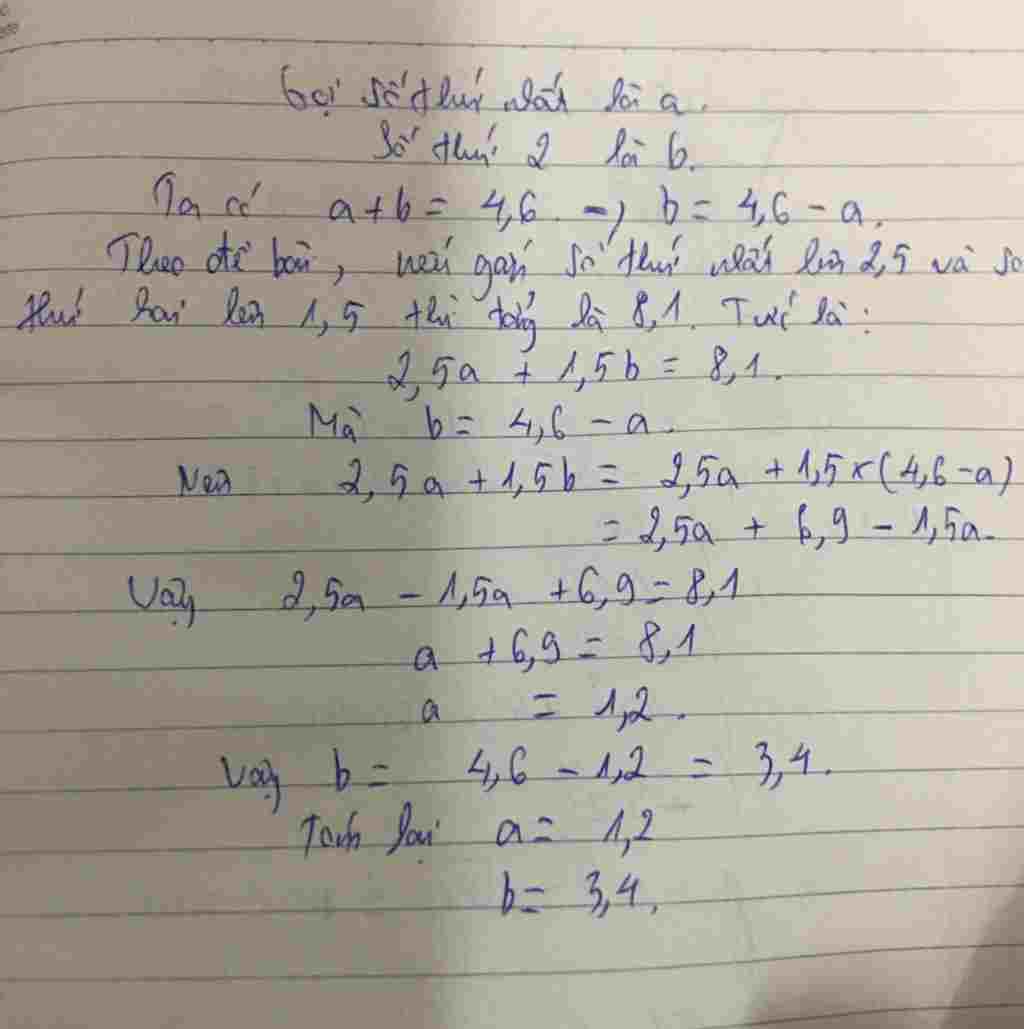 Gọi số thứ nhất là a.
Số thứ 2 là b.
Ta có a + b = 4,6 → b = 4,6 - a.
Theo đề bài, nếu gấp số thứ nhất lên 2,5 và số
thứ hai lên 1,5 thì tổng là 8,1. Tức là:
2,5a + 1,5b = 8,1.
Mà b = 4,6 - a.
Nên 2,5a + 1,5b = 2,5a + 1,5 x (4,6 - a)
= 2,5a + 6,9 - 1,5a.
Vậy 2,5a - 1,5a + 6,9 = 8,1
a + 6,9 = 8,1
a = 1,2.
Vậy b = 4,6 - 1,2 = 3,4.
lại a = 1,2
b = 3,4.